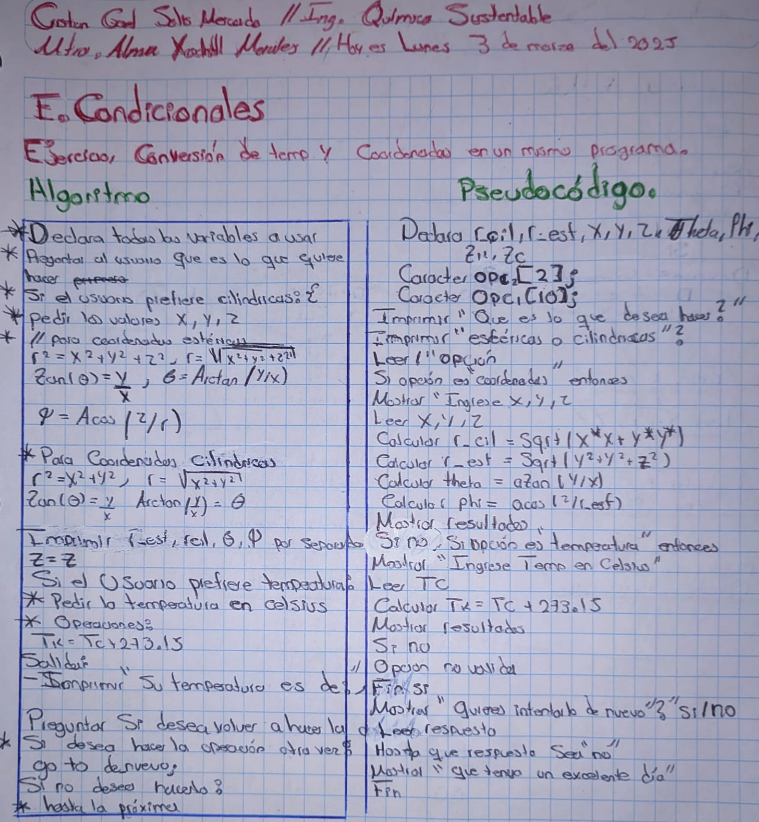 Gael Solis Mercado // Ing. Química Sustentable
Mtra. Alma Xochitl Morales // Hoy es Lunes 3 de marzo del 2025
E. Condicionales
Ejercicio, Conversión de temp y Coordenadas en un mismo programa.
Algoritmo
* Declara todas las variables a usar
* Preguntar al usuario que es lo que quiere
hacer
* Si el usuario prefiere cilindricas: {
* pedir los valores X, Y, Z
* // para coordenadas esféricas
r² = x² + y² + z², r = √(x²+y²+z²)
Tan(θ) = y/x, θ = Arctan(y/x)
φ = Acos (z/r)
* Para Coordenadas Cilíndricas
r² = x² + y², r = √x²+y²
Tan(θ) = y/x Arctan(y/x) = θ
Imprimir r_est, rcil, θ, φ por separado
Z = Z
Si el Usuario prefiere temperatura:
* Pedir la temperatura en celsius
* Operaciones:
TK = Tc + 273.15
Salida:
- Imprimir "Su temperatura es de: "
Preguntar Si desea volver a hacer la
* Si desea hacer la operación otra vez:
go to denuevo;
Si no desea hacerlo:
* hasta la próxima
Pseudocódigo.
Declara r_cil, r_est, X, Y, Z, Theta, Phi,
Zn, Zc
Caracter opc2[2];
Caracter Opc1[10];
Imprimir "Que es lo que desea hacer?"
Imprimir "esféricas o cilindricas"?
Leer "opción"
Si opción es "coordenadas" entonces
Mostrar "Ingrese X, Y, Z
Leer X, Y, Z
Calcular r_cil = Sqrt(x*x + y*y*)
Calcular r_est = Sqrt(y²+y²+z²)
Calcular theta = atan(y/x)
Calcular phi = acos(z/r_esf)
Mostrar resultados.
Si no, Si opción es temperatura" entonces
Mostrar "Ingrese Temp en Celsius"
Leer TC
Calcular TK = TC + 273.15
Mostrar resultados
Si no
Opcion no valida
Fin si
Mostrar "quieres intentarlo de nuevo"?" si/no
Leer respuesta
Hasta que respuesta sea "no"
Mostrar "que tenga un excelente día"
Fin